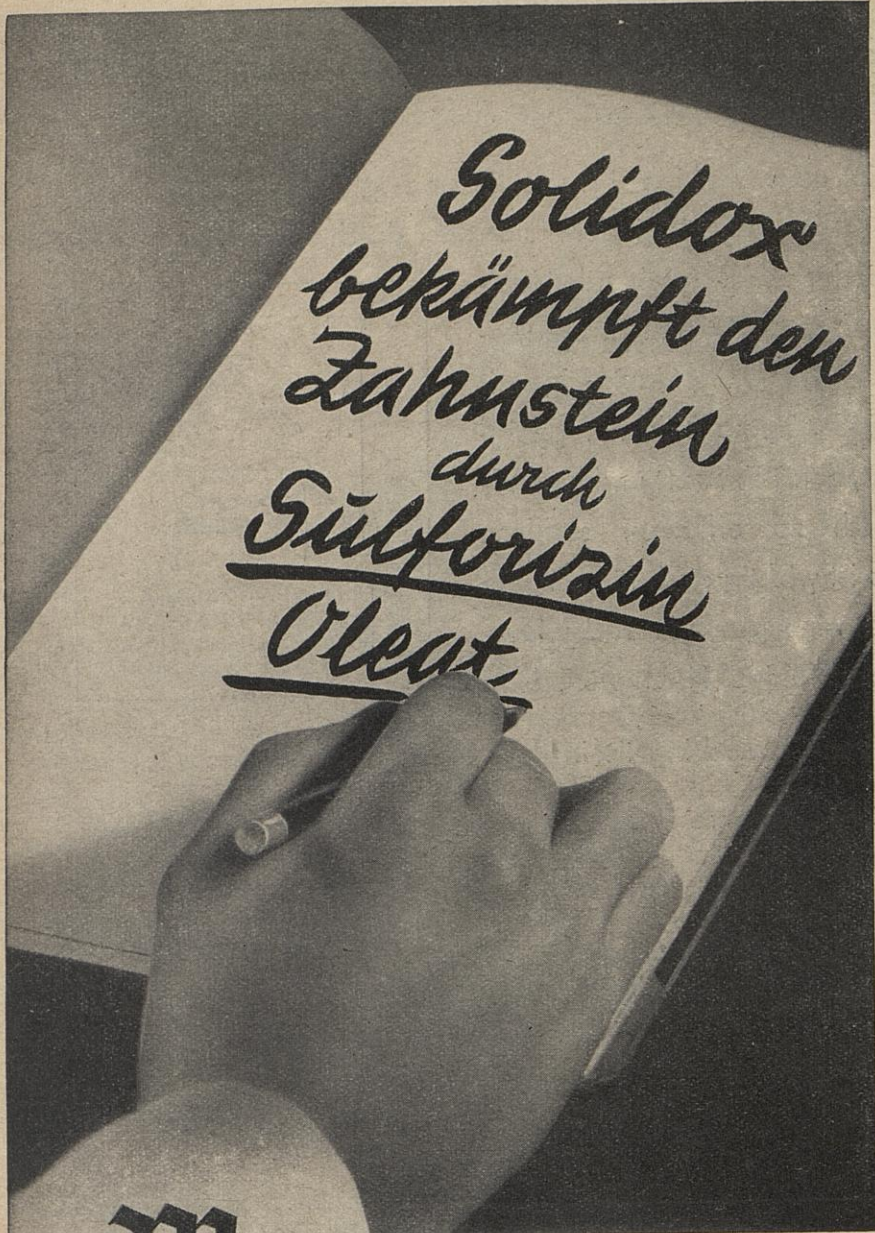 Solidox
bekämpft den
Zahnstein
durch
Sulforizin
Oleat